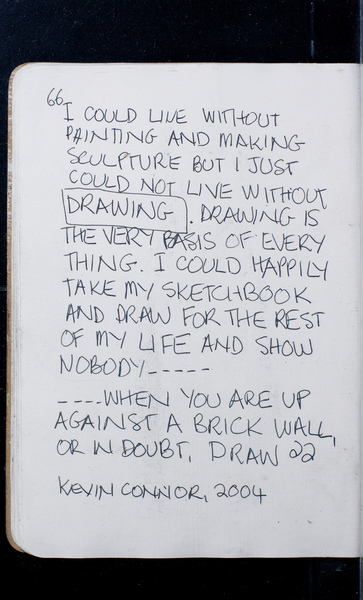 66 I COULD LIVE WITHOUT
PAINTING AND MAKING
SCULPTURE BUT I JUST
COULD NOT LIVE WITHOUT
DRAWING. DRAWING IS
THE VERY BASIS OF EVERY
THING. I COULD HAPPILY
TAKE MY SKETCHBOOK
AND DRAW FOR THE REST
OF MY LIFE AND SHOW
NOBODY-----
----WHEN YOU ARE UP
AGAINST A BRICK WALL,
OR IN DOUBT, DRAW 99
KEVIN CONNOR, 2004